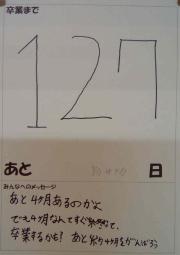 卒業まで
127
あと 日
みんなへのメッセージ
あと4ヶ月あるのかよ
でも4ヶ月なんてすぐ終って、
卒業するかも? あと約4ヶ月をがんばろう